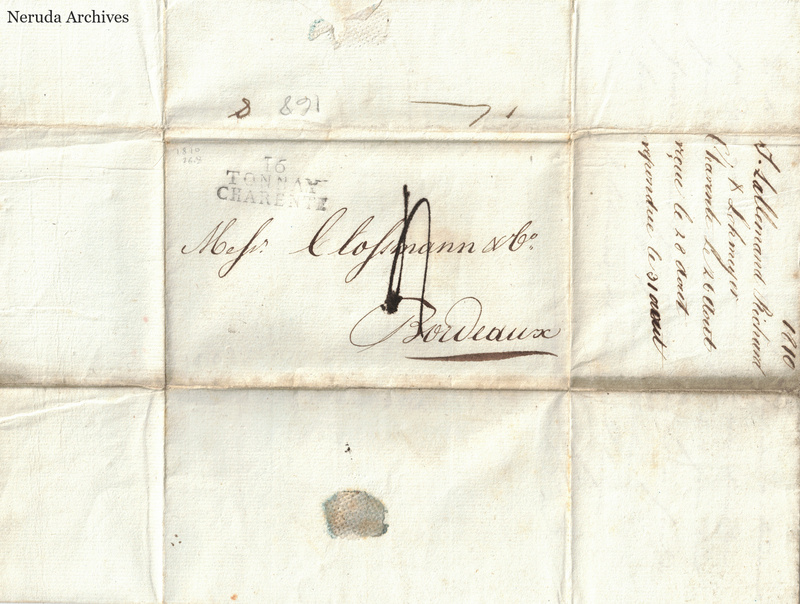 Neruda Archives
8 891
1810
26.9
16
TONNAY
CHARENTE
Messrs. Clossmann & Co.
Bordeaux
1810
J. Lallemand Richard
& Lehmeyer
Charente le 26 aout
reçue le 28 aout
répondue le 31 aout